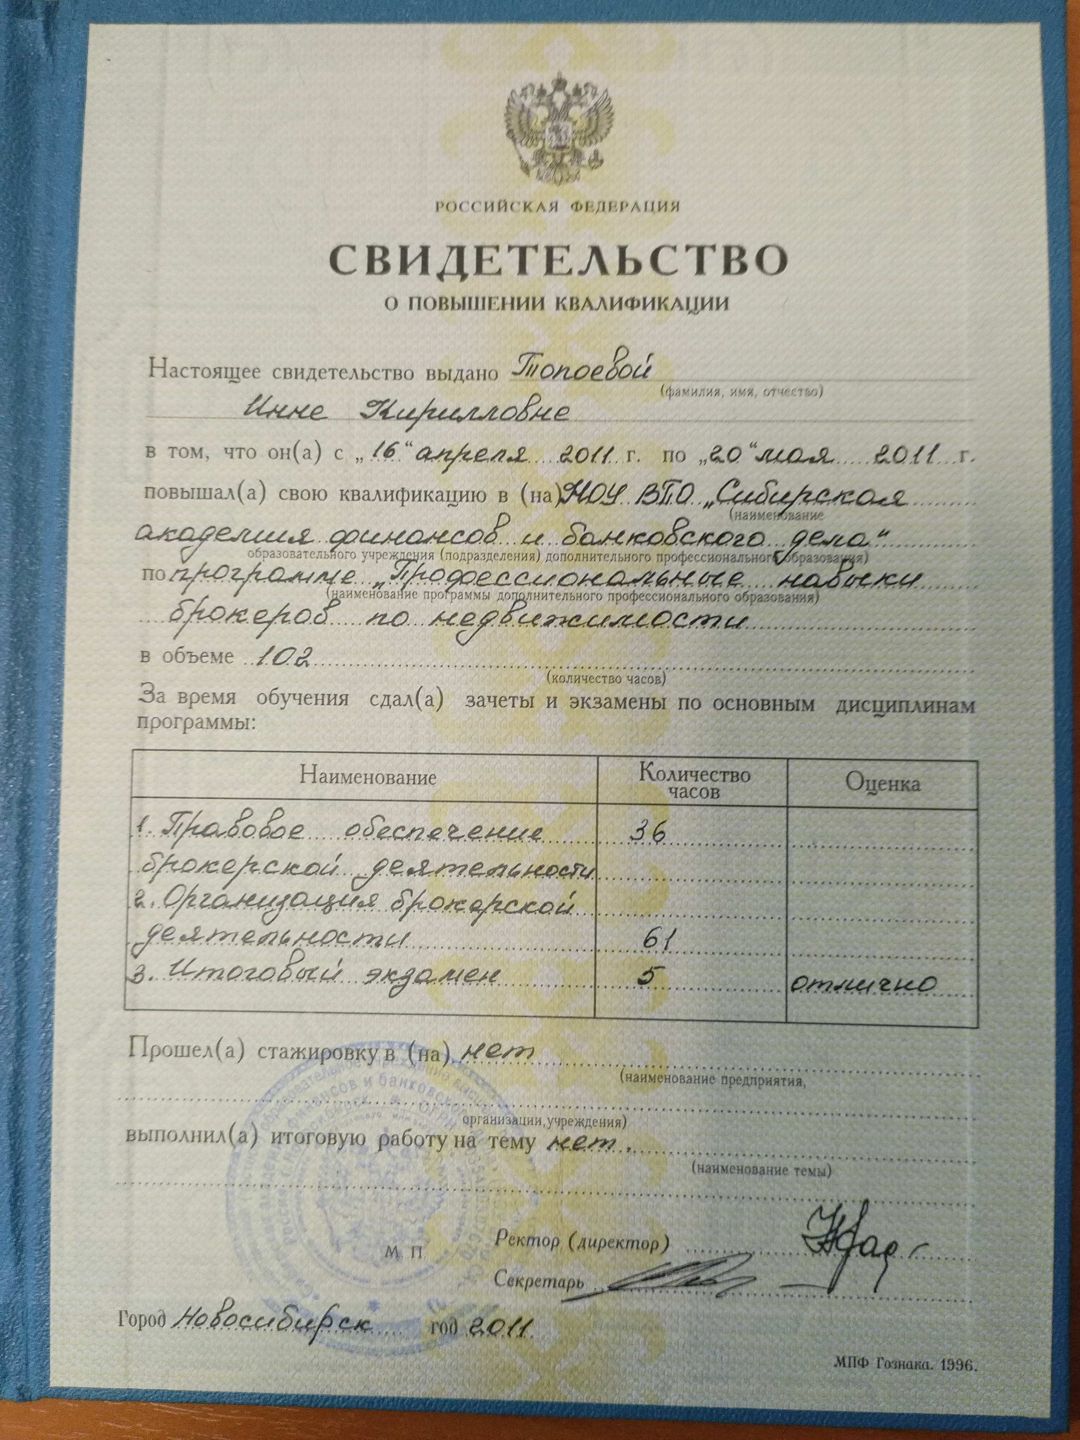 РОССИЙСКАЯ ФЕДЕРАЦИЯ
СВИДЕТЕЛЬСТВО
О ПОВЫШЕНИИ КВАЛИФИКАЦИИ
Настоящее свидетельство выдано Топоевой
(фамилия, имя, отчество)
Инне Кирилловне
в том, что он(а) с „16“ апреля 2011 г. по „20“ мая 2011 г.
повышал(а) свою квалификацию в (на) НОУ ВПО „Сибирская
(наименование
академия финансов и банковского дела“
образовательного учреждения (подразделения) дополнительного профессионального образования)
по программе „Профессиональные навыки
(наименование программы дополнительного профессионального образования)
брокеров по недвижимости
в объеме 102
(количество часов)
За время обучения сдал(а) зачеты и экзамены по основным дисциплинам
программы:
Наименование Количество часов Оценка
1. Правовое обеспечение 36
брокерской деятельности
2. Организация брокерской
деятельности 61
3. Итоговый экзамен 5 отлично
Прошел(а) стажировку в (на) нет
(наименование предприятия,
организации, учреждения)
выполнил(а) итоговую работу на тему нет.
(наименование темы)
М П
Ректор (директор)
Секретарь
Город Новосибирск год 2011
МПФ Гознака. 1996.